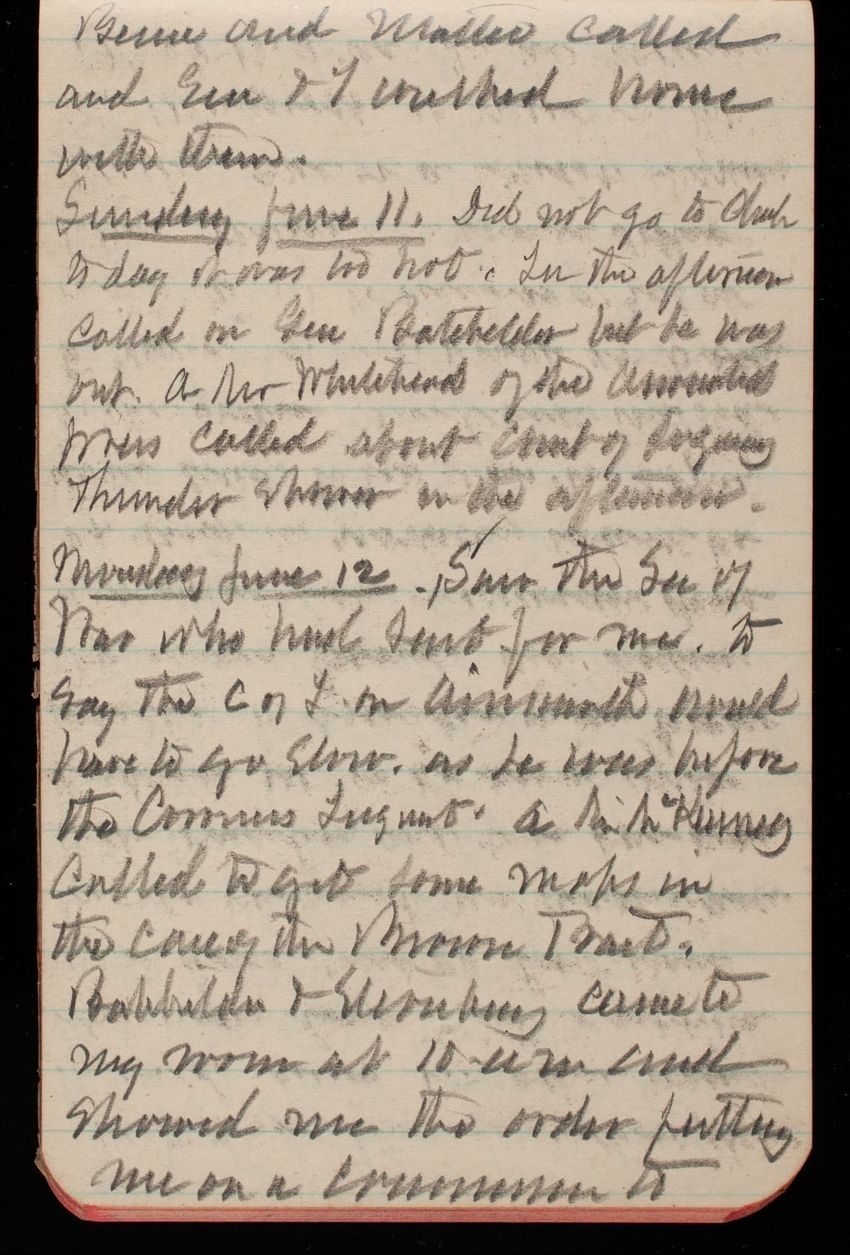 and Mattie called
and Gen & I walked home
with them.
Sunday June 11. Did not go to Chuch
to day it was too hot. In the afternoon
called on Gen Batchelder but he was
out. A Mr Whitehead of the Associated
press called about Court of Inquiry
Thunder Shower in the afternoon.
Monday June 12. Saw the Sec of
War who had sent for me. to
say the C of I. on Ainsworth would
have to go slow. as he was before
the Coroners Inquest. a Mr McKinney
called to get some maps in
the case of the Brown Tract.
Babbitt & Ellenburg came to
my room at 10 am and
showed me the order putting
me on a commission to